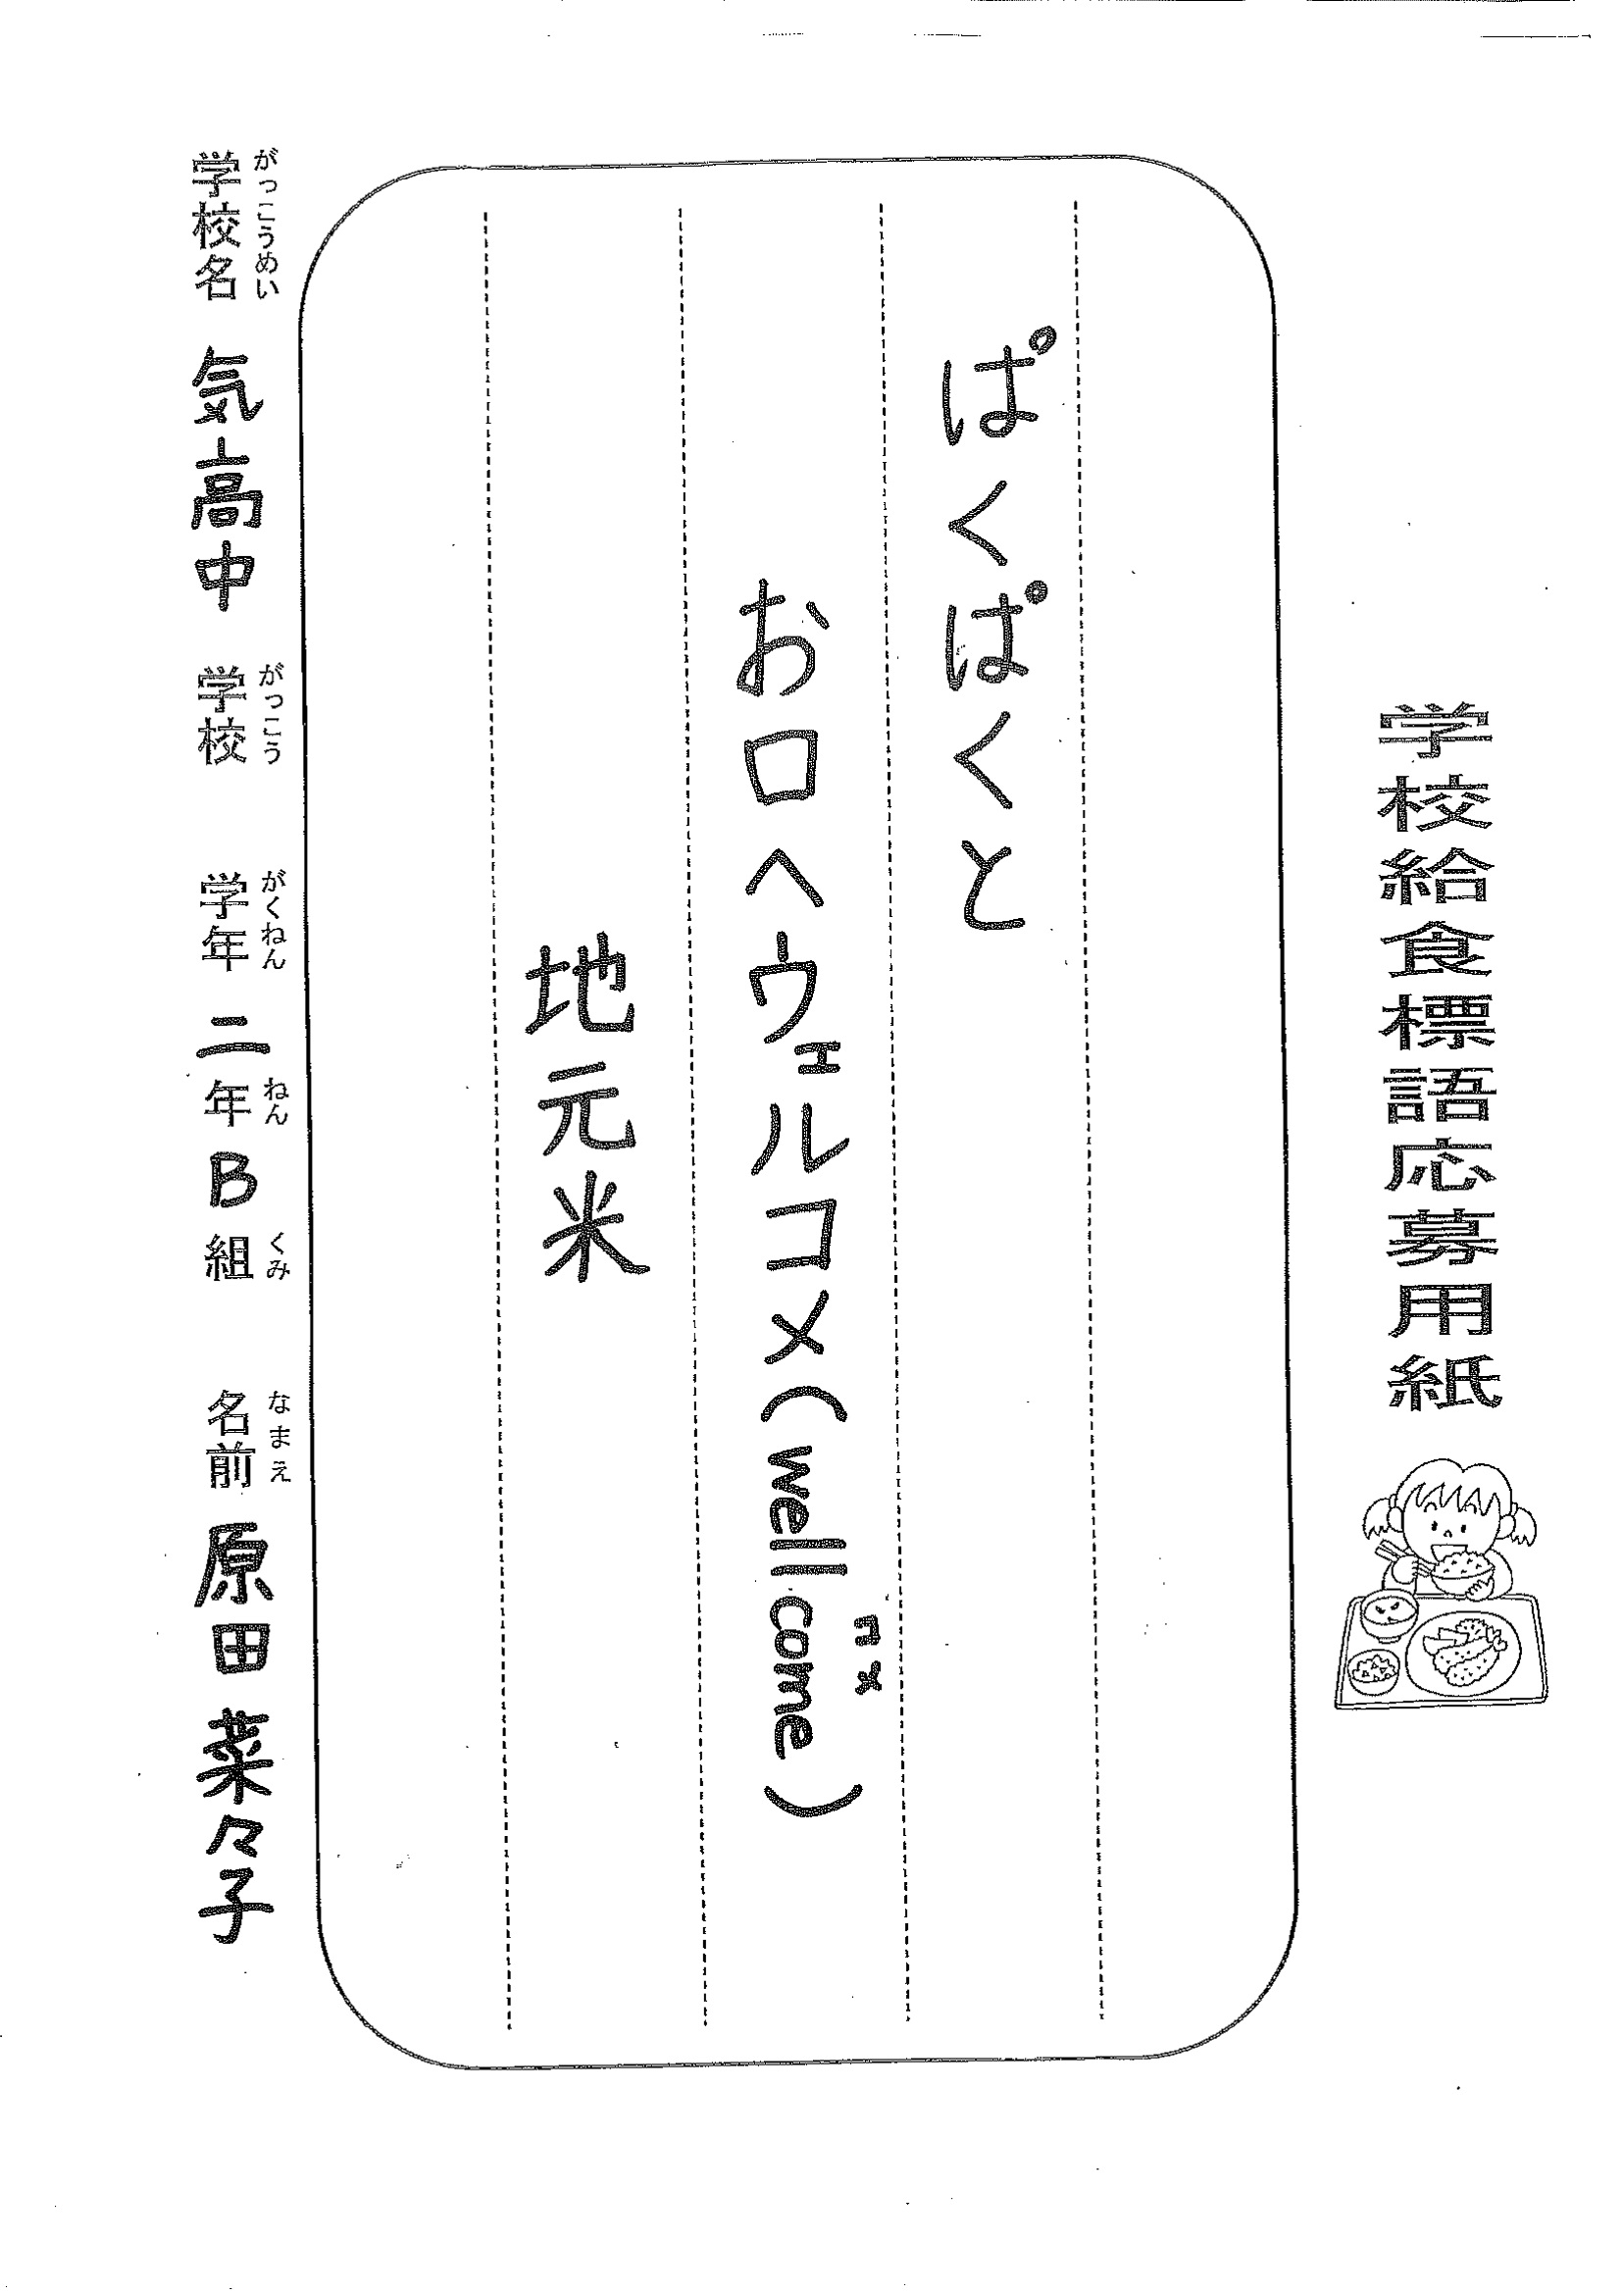 学校給食標語応募用紙
ぱくぱくと
お口へウェルコメ(well come)
コメ
地元米
がっこうめい がっこう がくねん ねん くみ なまえ
学校名 気高中 学校 学年 二年 B 組 名前 原田 菜々子